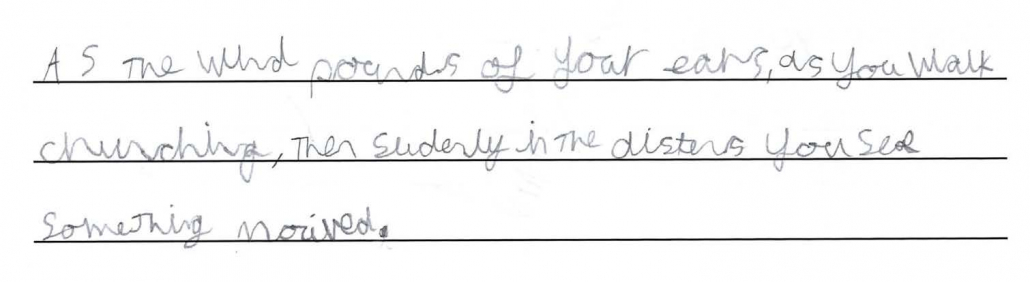 As the wind pounds of your ears, as you walk
chunching, then suderly in the distens you see
something moived.